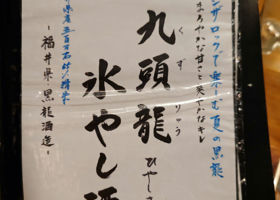 ンザロックで楽しむ夏の黒龍
まろやかな甘さと爽やかなキレ
九頭龍
くずりゅう
氷やし酒
ひやしざ
県産五百万石
-福井県 黒龍酒造-